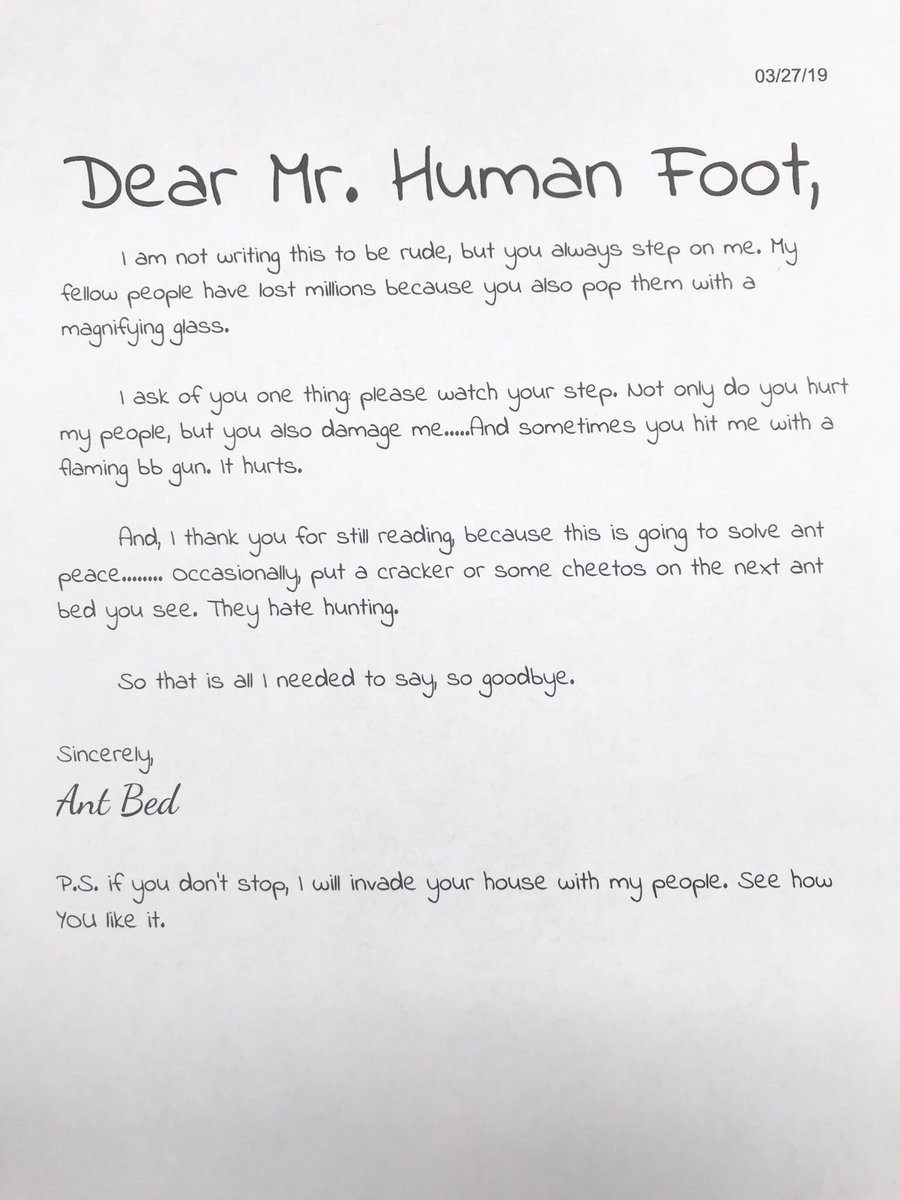 03/27/19
Dear Mr. Human Foot,
I am not writing this to be rude, but you always step on me. My
fellow people have lost millions because you also pop them with a
magnifying glass.
I ask of you one thing: please watch your step. Not only do you hurt
my people, but you also damage me.....And sometimes you hit me with a
flaming bb gun. It hurts.
And, I thank you for still reading, because this is going to solve ant
peace........ Occasionally, put a cracker or some cheetos on the next ant
bed you see. They hate hunting.
So that is all I needed to say, so goodbye.
Sincerely,
Ant Bed
P.S. if you don't stop, I will invade your house with my people. See how
YOU like it.